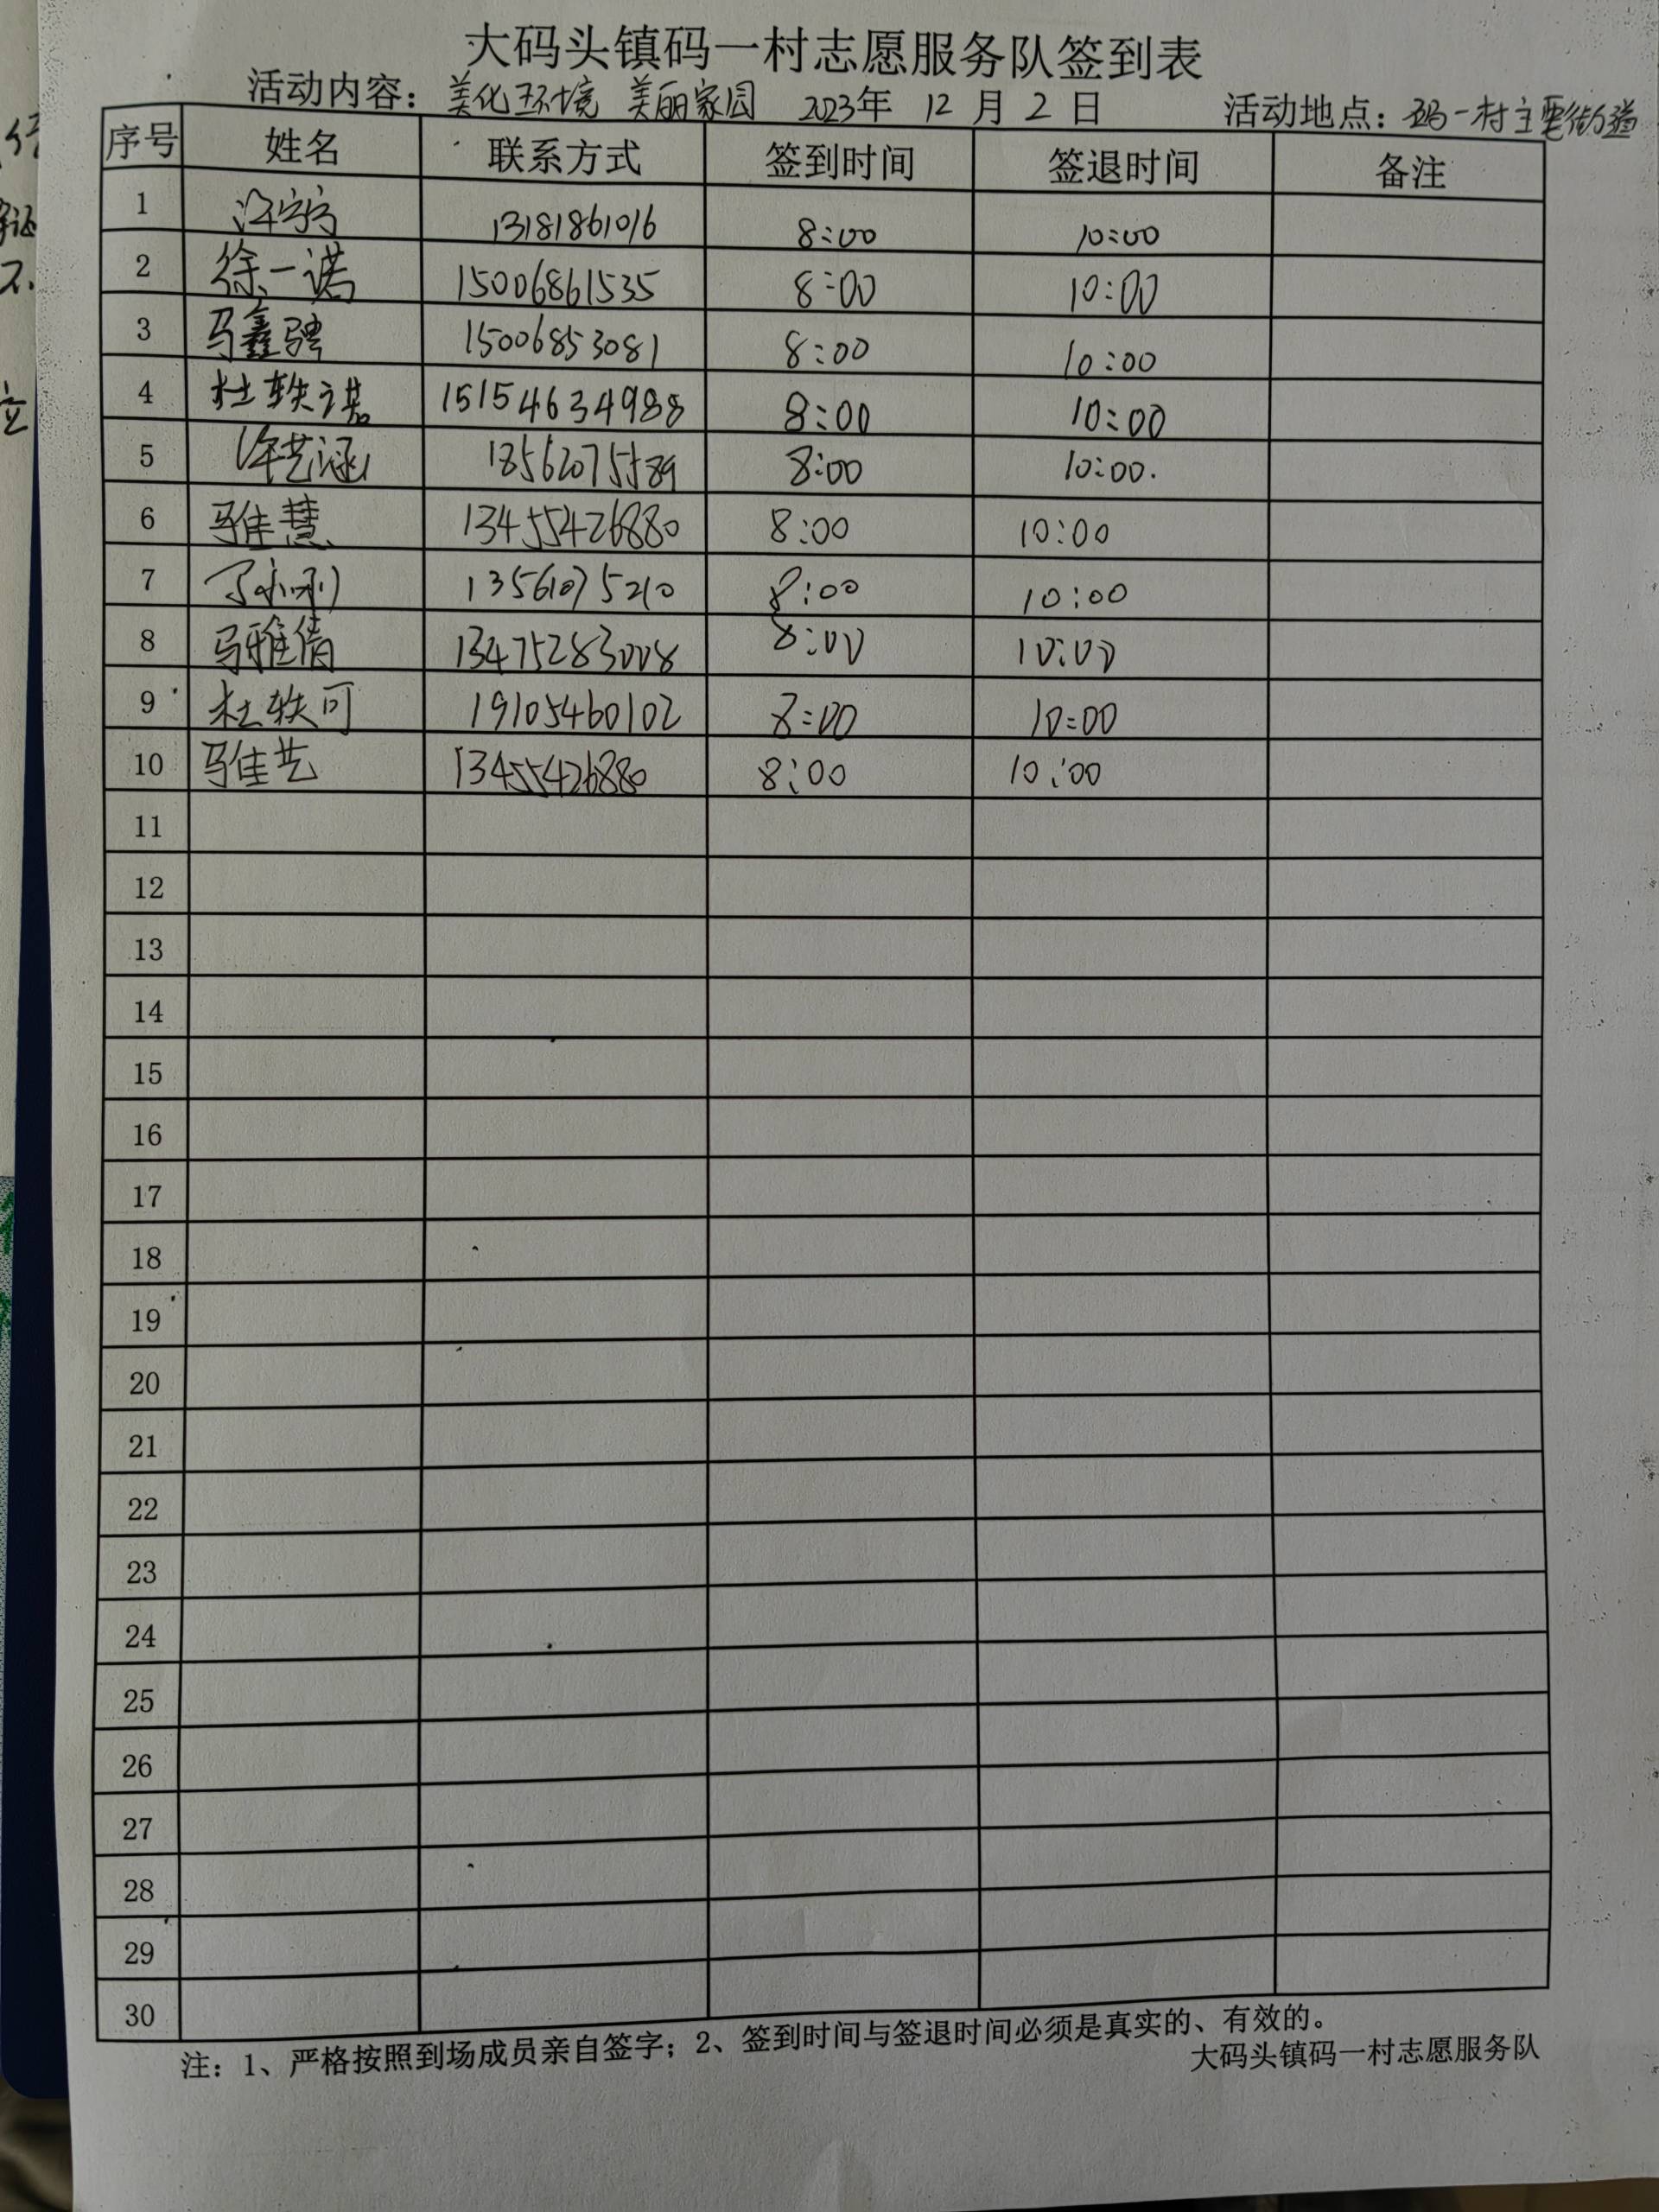 大码头镇码一村志愿服务队签到表
活动内容：美化环境 美丽家园 2023年 12月2日 活动地点：码一村主要街道
序号 姓名 联系方式 签到时间 签退时间 备注
1 13181861016 8:00 10:00
2 徐一诺 15006861535 8:00 10:00
3 马鑫骋 15006853081 8:00 10:00
4 杜轶诺 15154634988 8:00 10:00
5 许艺涵 18562075589 8:00 10:00.
6 马佳慧 13455426880 8:00 10:00
7 13561075210 8:00 10:00
8 马雅倩 13475283008 8:00 10:00
9 杜轶可 19105460102 8:00 10:00
10 马佳艺 13455426880 8:00 10:00
11
12
13
14
15
16
17
18
19
20
21
22
23
24
25
26
27
28
29
30
注：1、严格按照到场成员亲自签字；2、签到时间与签退时间必须是真实的、有效的。
大码头镇码一村志愿服务队